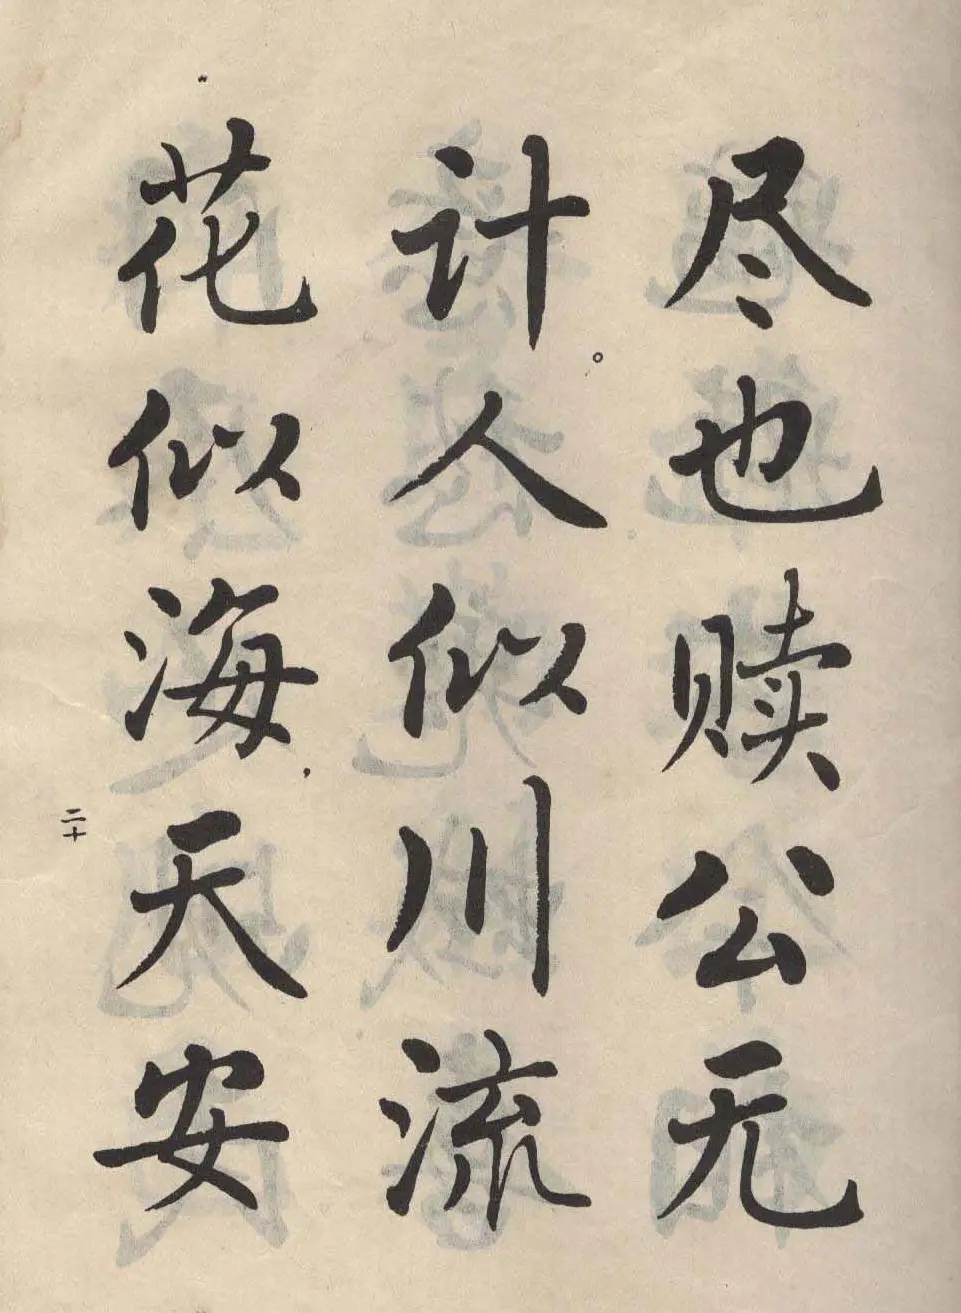 尽也赎公无
计。人似川流
花似海，天安
二十